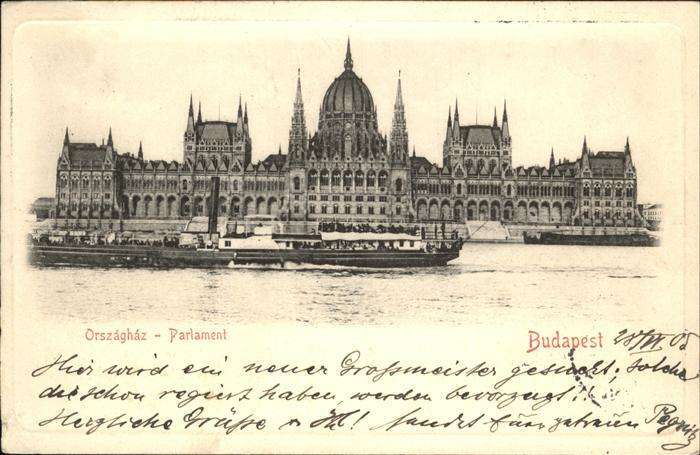 Országház - Parlament
Budapest
Hier wird ein neuer Großmeister gesucht; solche
die schon regiert haben, werden bevorzugt!
Herzliche Grüße